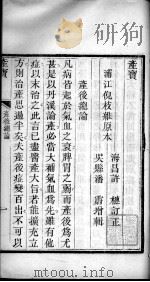 產寶
浦江倪枝維原本
海昌許槤訂正
吳縣潘霨增輯
產後總論
凡病皆起於氣血之衰脾胃之弱而產後為尤
甚是以丹溪論產必當大補氣血為先雖有他
症以末治之此言已盡醫產大旨者能擴充立
方則治產思過半矣夫產後症變百出不可以
產寶
產後總論
一